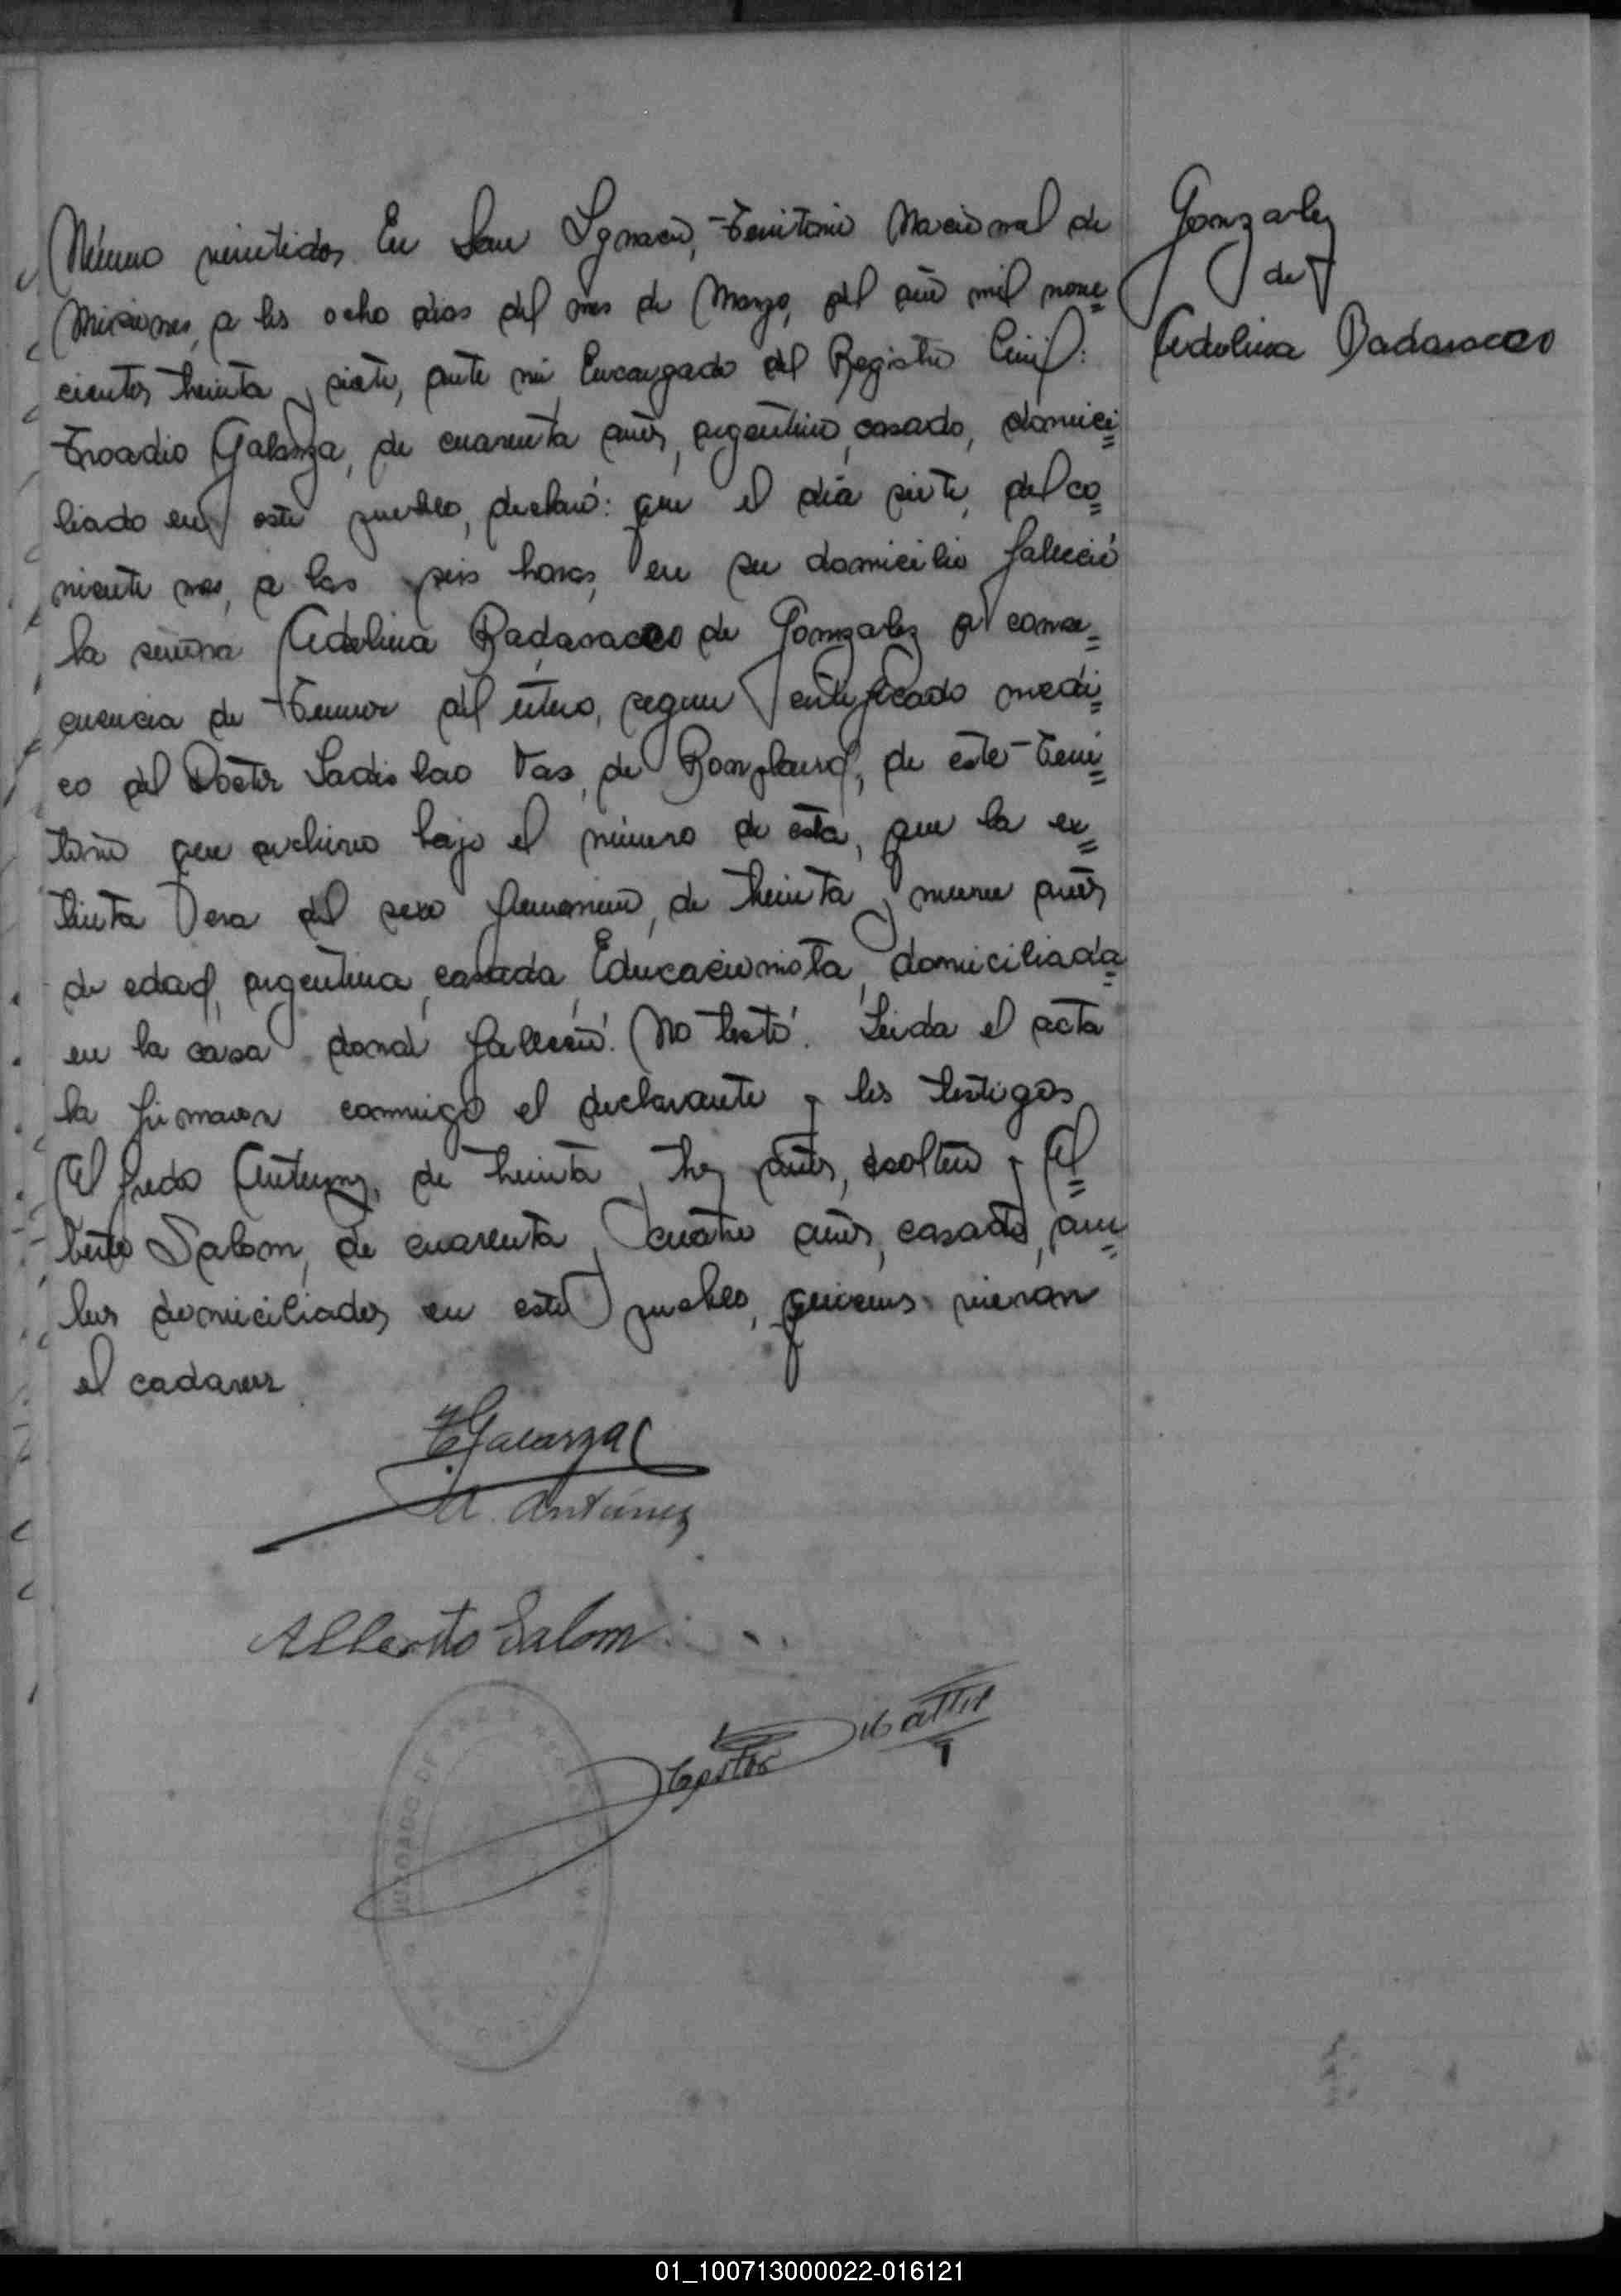 Número veintidos. En San Ygnacio, Territorio Nacional de
Misiones, a los ocho dias del mes de Marzo, del año mil nove=
cientos treinta y siete, ante mi Encargado del Registro Civil:
Troadio Galarza, de cuarenta años, argentino, casado, domici=
liado en este pueblo, declaró: que el día siete, del co=
rriente mes, a las seis horas, en su domicilio falleció
la señora Adelina Badaracco de Gonzalez a conse=
cuencia de tumor del útero, segun certificado medi=
co del Doctor Ladislao Vas, de Bonpland, de este terri=
torio que archivo bajo el número de esta, que la ex=
tinta era del sexo femenino, de treinta y nueve años
de edad, argentina, casada, Educacionista, domiciliada=
en la casa donde falleció. No testó. Leida el acta
la firmaron conmigo el declarante y los testigos
Alfredo Antunez, de treinta y tres años, soltero y Al=
berto Salom, de cuarenta y cuatro años, casado, am=
bos domiciliados en este pueblo, quienes vieron
el cadaver
Gonzalez
de
Adelina Badaracco
T Galarza
A. Antúnez
Alberto Salom
JUZGADO DE PAZ
01_100713000022-016121